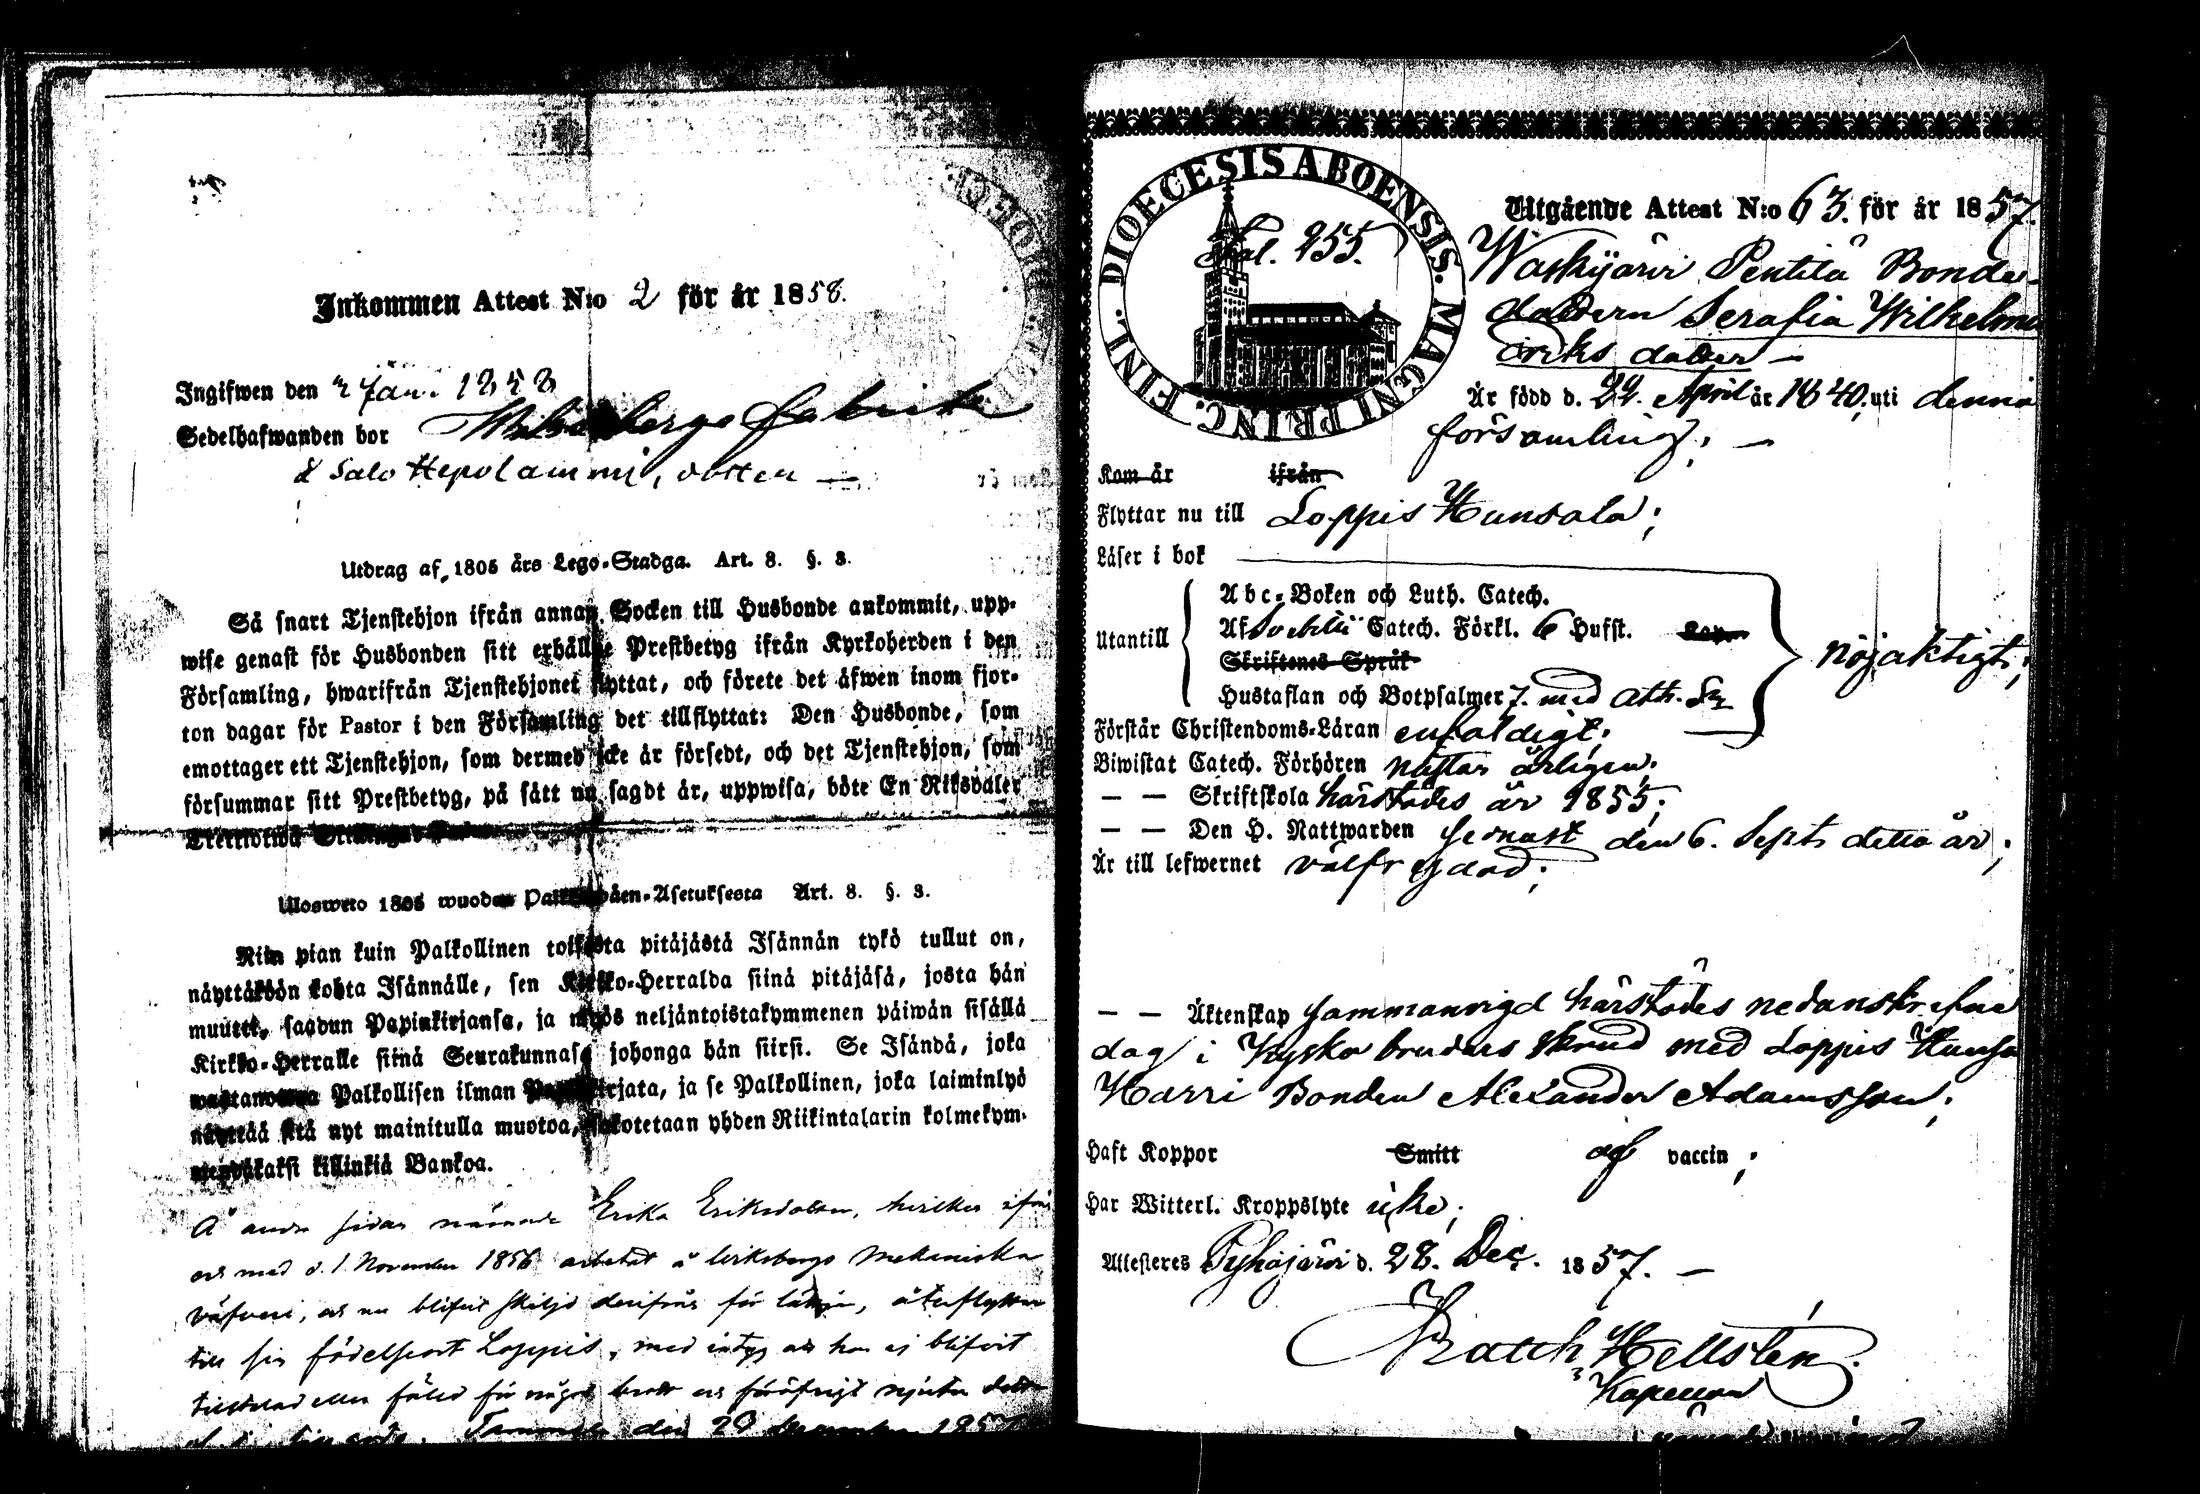 Inkommen Attest N:o 2 för år 1858.
Ingifwen den 2 Jan. 1858
Sedelhafwanden bor fabrik
Salo Hepolammi,
Utdrag af 1805 års Lego-Stadga. Art. 8. §. 3.
Så snart Tjenstehjon ifrån annan Socken till Husbonde ankommit, upp-
wise genast för Husbonden sitt erhållne Prestbetyg ifrån Kyrkoherden i den
Församling, hwarifrån Tjenstehjonet flyttat, och förete det äfwen inom fjor-
ton dagar för Pastor i den Församling det tillflyttat: Den Husbonde, som
emottager ett Tjenstehjon, som dermed icke är försedt, och det Tjenstehjon, som
försummar sitt Prestbetyg, på sätt nu sagdt är, uppwisa, böte En Riksdaler
Ulosweto 1805 wuoden Palkollisten-Asetuksesta Art. 8. §. 3.
Niin pian kuin Palkollinen toisesta pitäjästä Isännän tykö tullut on,
näyttäköön kohta Isännälle, sen Kirkko-Herralda siinä pitäjäsä, josta hän
muutti, saadun Papinkirjansa, ja myös neljäntoistakymmenen päiwän sisällä
Kirkko-Herralle siinä Seurakunnasa johonga hän siirsi. Se Isändä, joka
Palkollisen ilman Papinkirjata, ja se Palkollinen, joka laiminlyö
näyttää sitä nyt mainitulla muotoa, sakotetaan yhden Riikintalarin kolmekym-
mendäkaksi killinkiä Bankoa.
Å andra sidan nämnde Erika Eriksdotter, hvilken ifrån
och med d. 1 November 1856 arbetat å Mekaniska
väfveri, och nu blifvit skiljd derifrån för återflyttar
till sin födelseort Loppis, med intyg att hon ej blifvit
tilltalad eller fälld för något brott och föröfrigt njuter
den 29 December 1857
DIOECESIS ABOENSIS. MAGNI PRINC. FINL.
Fol. 255.
Utgående Attest N:o 63. för år 1857.
Waskijärvi Pentilä Bonde-
dottern Serafia Wilhelmina
Eriks dotter —
Är född d. 22. April år 1840, uti denna
församling; —
Kom år ifrån
Flyttar nu till Loppis Hunsala;
Läser i bok
Utantill
Abc-Boken och Luth. Catech.
Af Svebilii Catech. Förkl. 6 Hufst. Kap.
Skriftenes Språk
Hustaflan och Botpsalmer 7. med Ath. Sy
nöjaktigt;
Förstår Christendoms-Läran enfaldigt;
Biwistat Catech. Förhören nästar årligen.
— — Skriftskola härstädes år 1855;
— — Den H. Nattwarden senast den 6. Sept. detta år;
Är till lefwernet välfrejdad;
— — Äktenskap sammanvigd härstädes nedanskrefne
dag i Kyrko bruders skrud med Loppis Hunsa
Harri Bonden Alexander Adamsson;
Haft Koppor Smitt af vaccin;
Har Witterl. Kroppslyte icke;
Attesteras Pyhäjärvi d. 28. Dec. 1857. —
Hellstén.
Kapellan